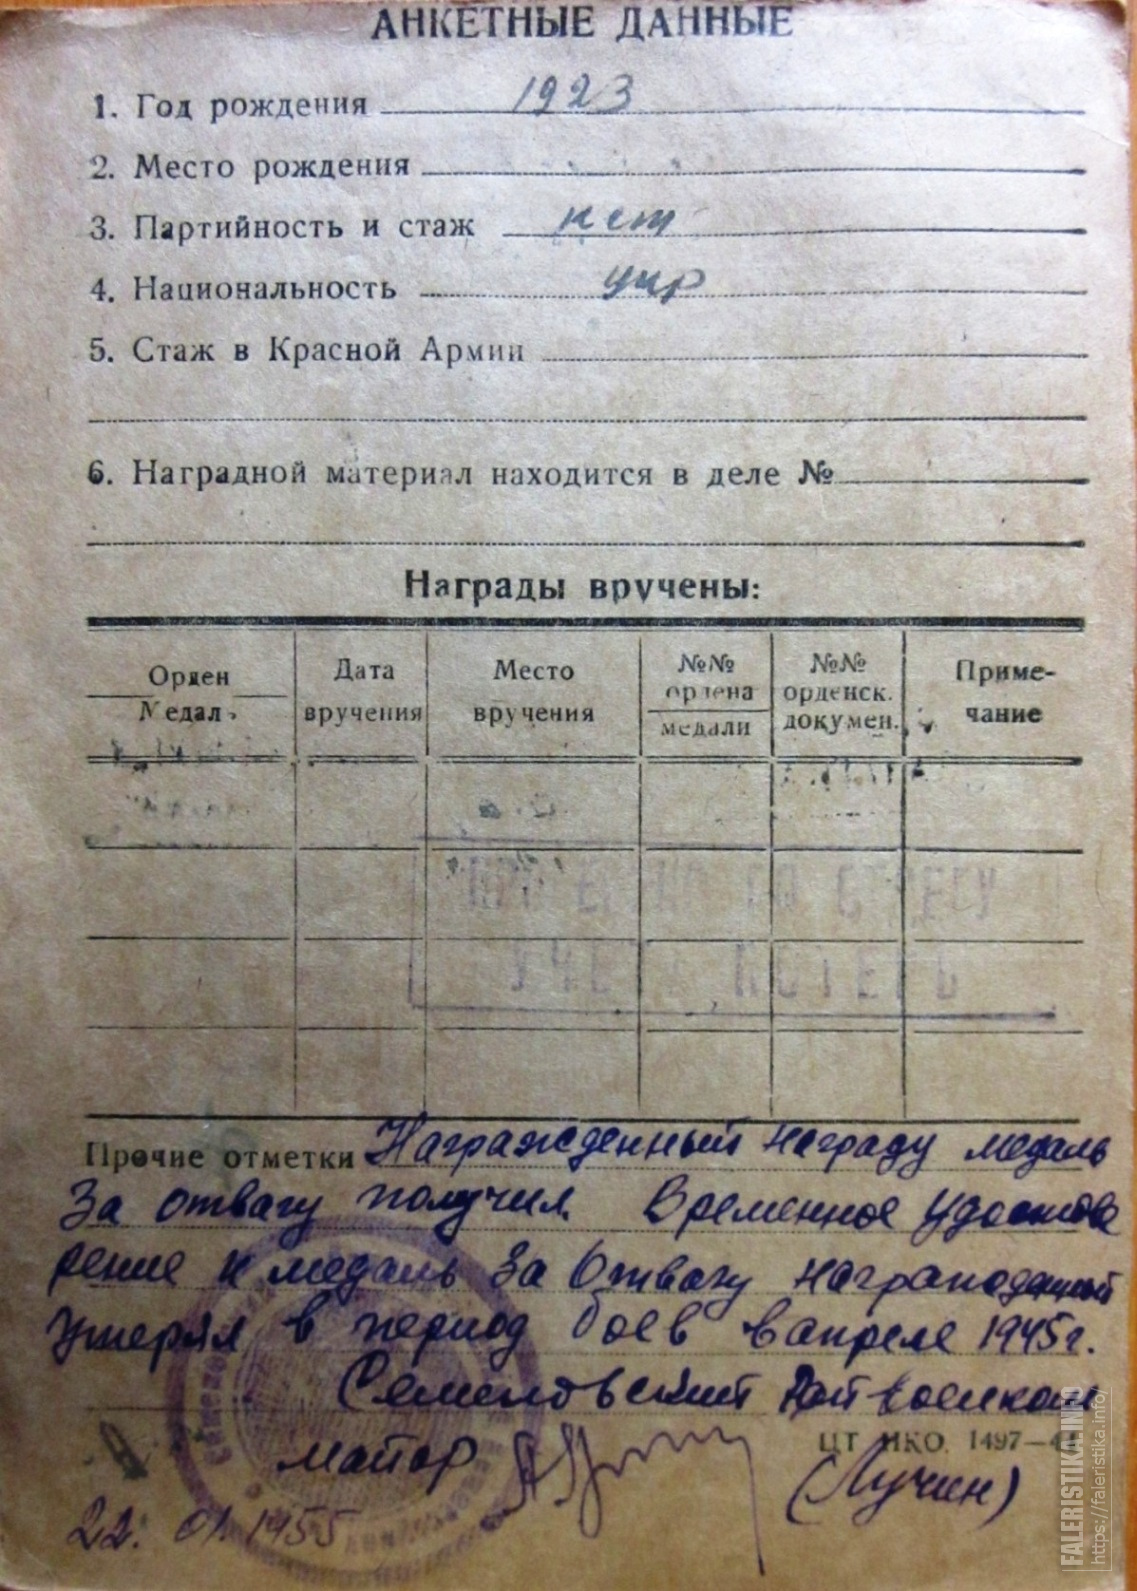 АНКЕТНЫЕ ДАННЫЕ
1. Год рождения 1923
2. Место рождения
3. Партийность и стаж нет
4. Национальность укр
5. Стаж в Красной Армии
6. Наградной материал находится в деле №
Награды вручены:
Орден
Медаль
Дата
вручения
Место
вручения
№№
ордена
медали
№№
орденск.
докумен.
Приме-
чание
Прочие отметки Награжденный награду медаль
За отвагу получил. Временное удостове
рение к медаль За Отвагу
утерял в период боев в апреле 1945 г.
Семеновский Райвоенком
ЦТ НКО. 1497—4
майор (Лучин)
22. 01. 1955
FALERISTIKA.INFO
https://faleristika.info/